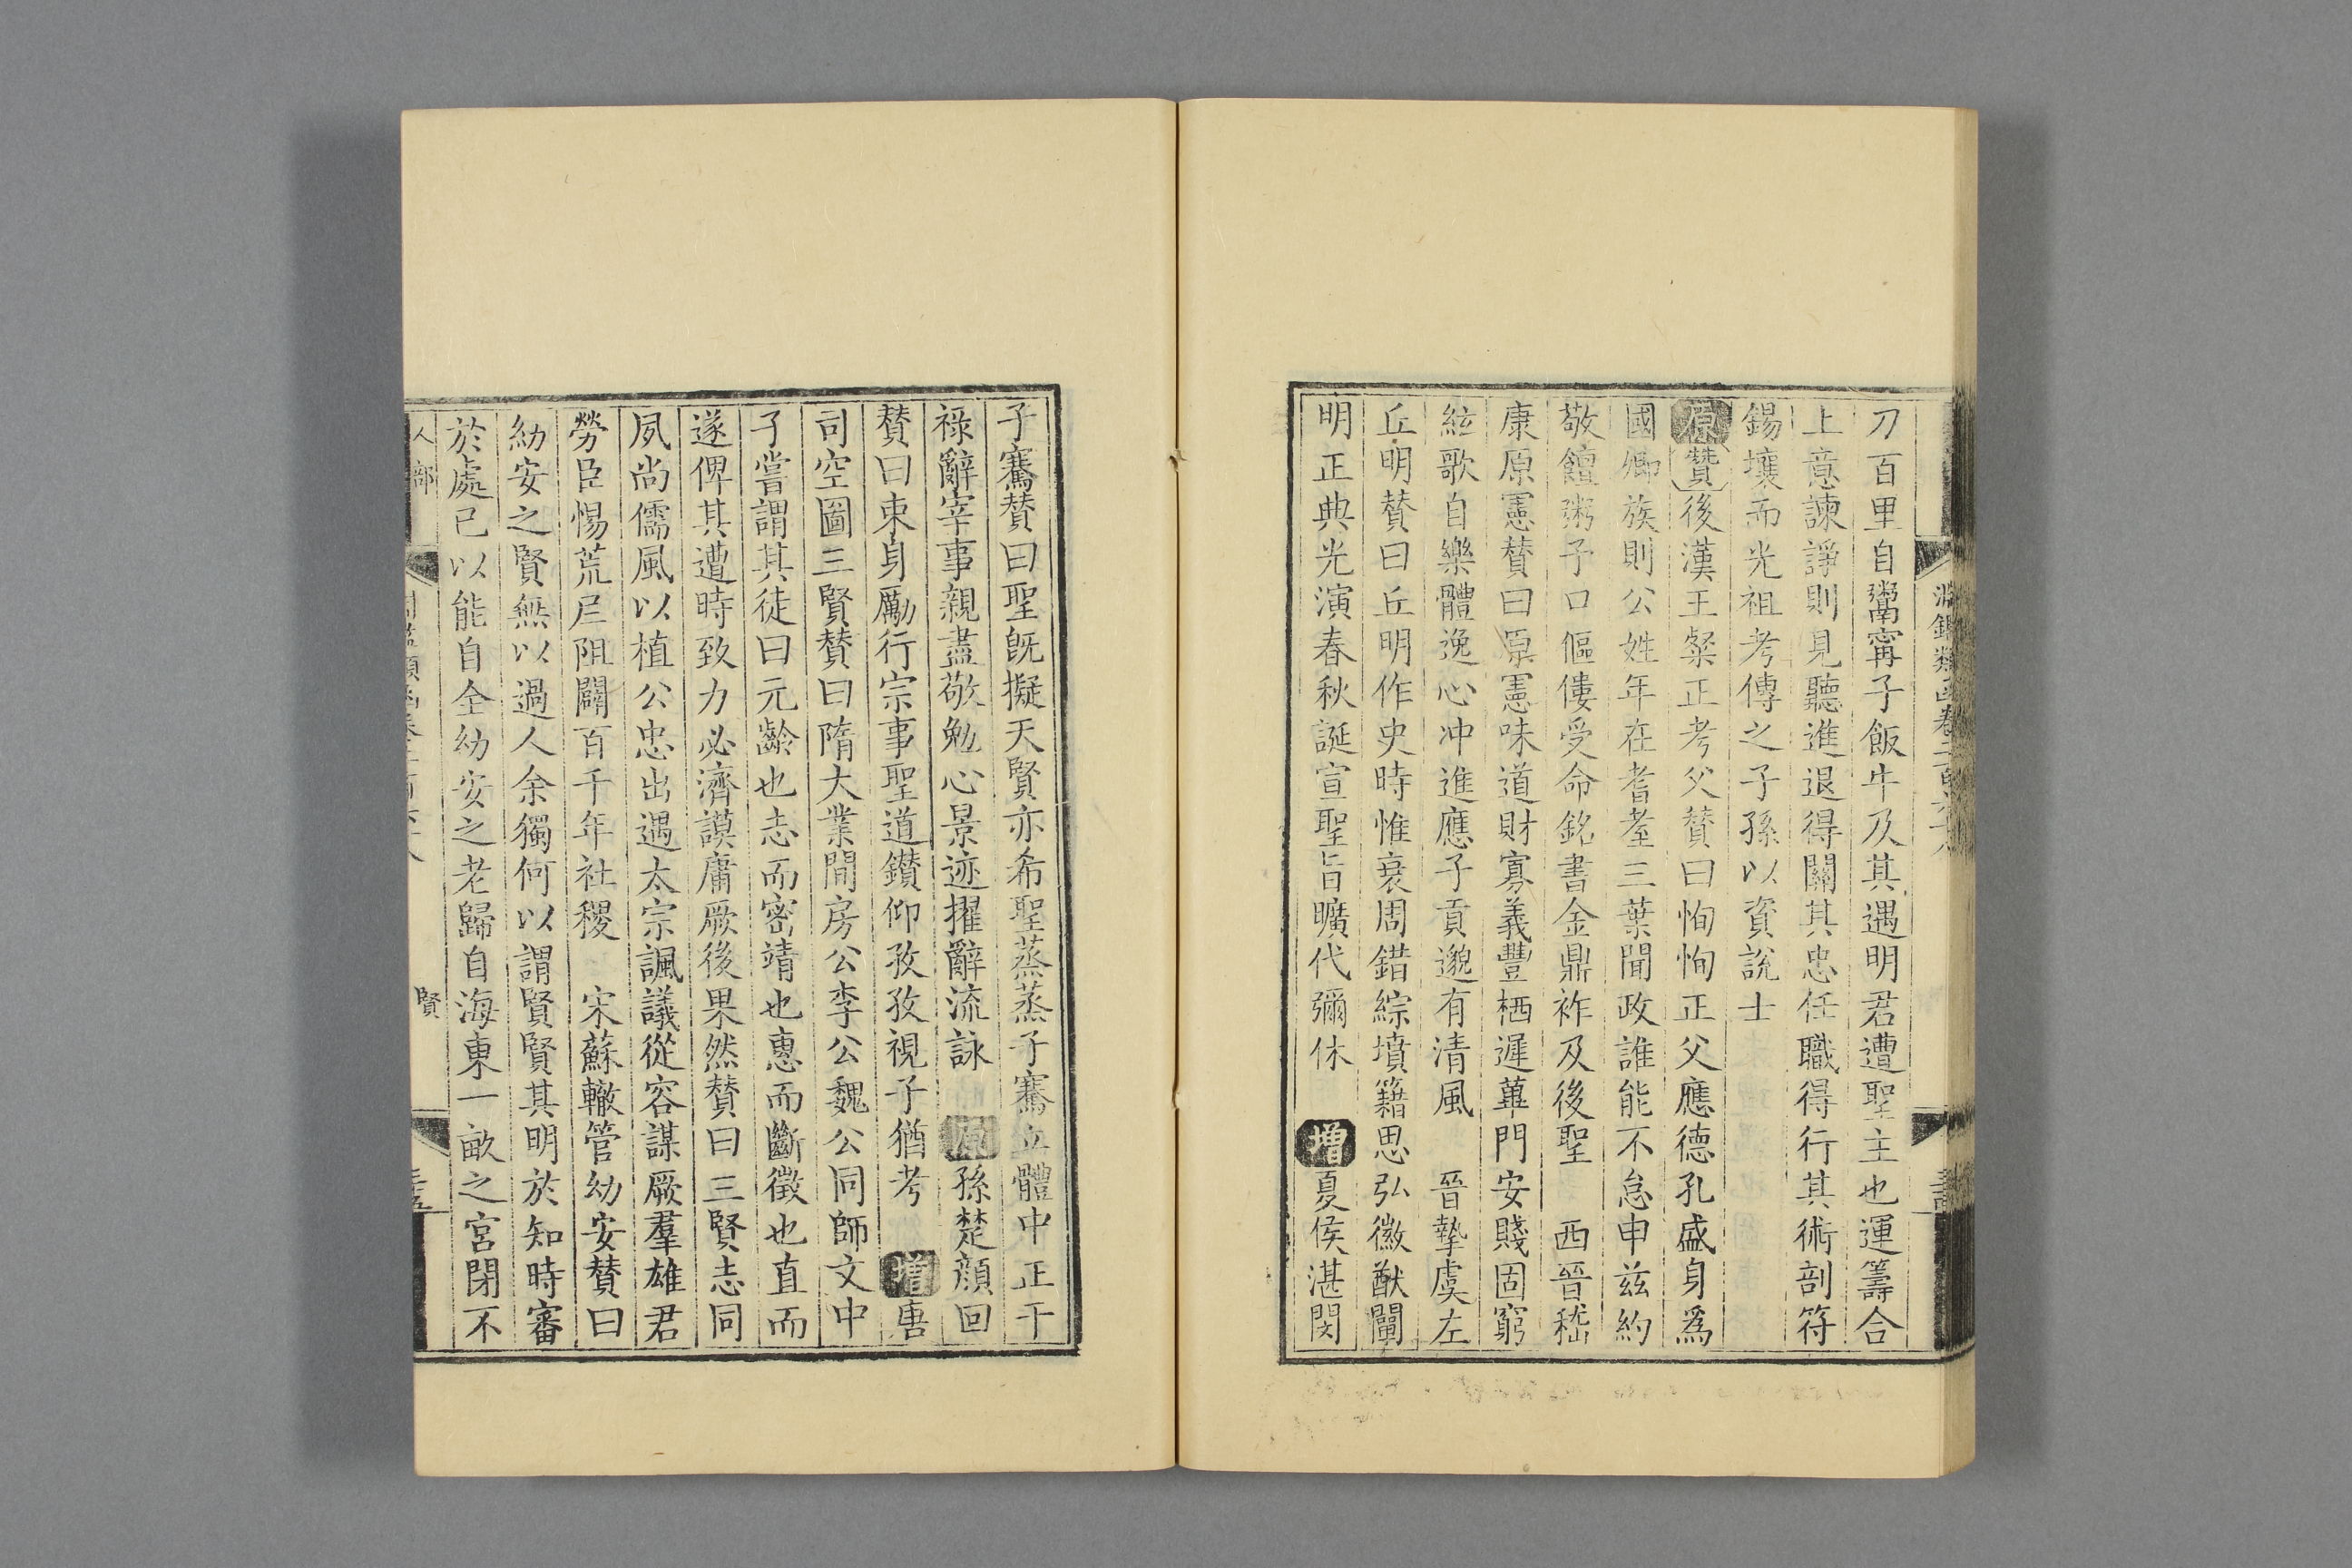 刀百里自鬻寗子飯牛及其遇明君遭聖主也運籌合
上意諫諍則見聽進退得關其忠任職得行其術剖符
錫壤而光祖考傳之子孫以資說士
原贊後漢王粲正考父贊曰恂恂正父應德孔盛身爲
國卿族則公姓年在耆耋三葉聞政誰能不怠申兹約
敬饘粥予口傴僂受命銘書金鼎祚及後聖　西晉嵇
康原憲贊曰原憲味道財寡義豐栖遲蓽門安賤固窮
絃歌自樂體逸心冲進應子貢邈有清風　晉摯虞左
丘明贊曰丘明作史時惟衰周錯綜墳籍思弘徽猷闡
明正典光演春秋誕宣聖旨曠代彌休　增夏侯湛閔
子騫贊曰聖旣擬天賢亦希聖蒸蒸子騫立體中正干
祿辭宰事親盡敬勉心景迹擢辭流詠　原孫楚顔回
贊曰束身勵行宗事聖道鑽仰孜孜視予猶考　增唐
司空圖三賢贊曰隋大業間房公李公魏公同師文中
子嘗謂其徒曰元齡也志而密靖也惠而斷徵也直而
遂俾其遭時致力必濟謨庸厥後果然贊曰三賢志同
夙尚儒風以植公忠出遇太宗諷議從容謀厥羣雄君
勞臣惕荒屁阻闢百千年社稷　宋蘇轍管幼安贊曰
幼安之賢無以過人余獨何以謂賢賢其明於知時審
於處己以能自全幼安之老歸自海東一畝之宮閉不
人部
賢